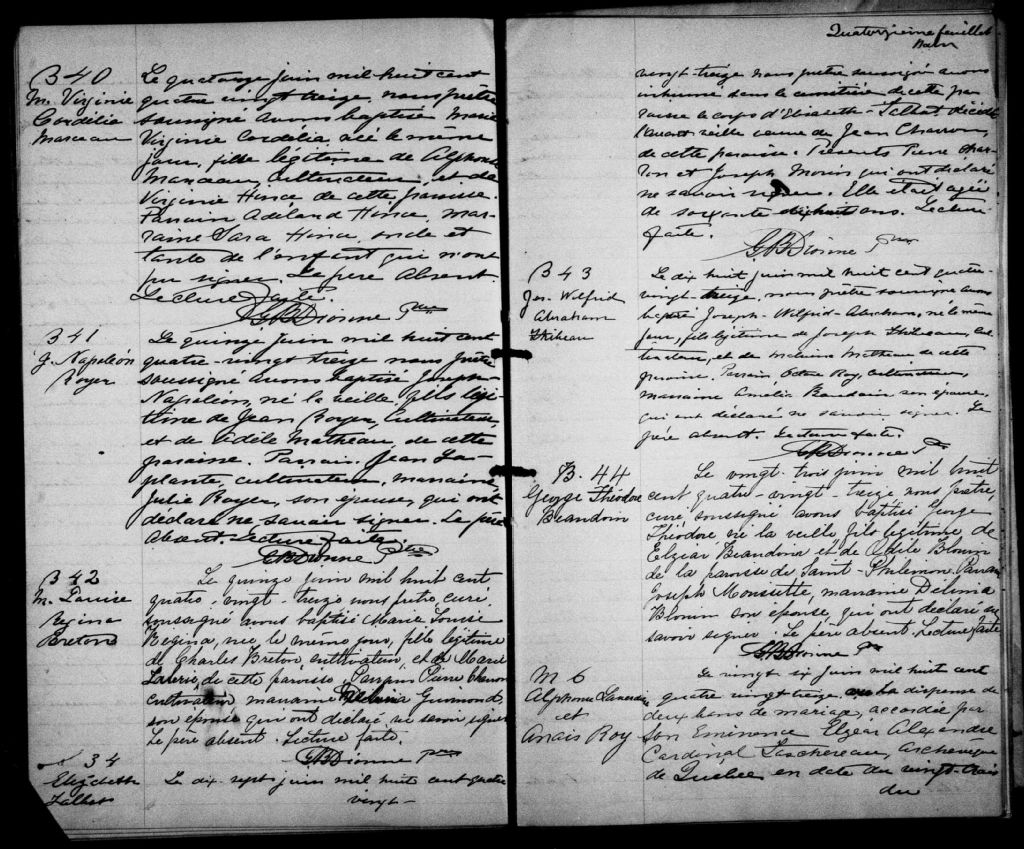 B 40
M. Virginie
Cordelia
Marceau
Le quatorze juin mil huit cent
quatre vingt treize, nous prêtre
soussigné avons baptisé Marie
Virginie Cordelia née le même
jour, fille légitime de Alphonse
Marceau, cultivateur, et de
Virginie Hince de cette paroisse.
Parrain Adélard Hince, mar-
raine Sara Hince, oncle et
tante de l'enfant qui n'ont
pu signer. Le père absent.
Lecture faite.
Dionne Ptre
B 41
J. Napoléon
Royer
Le quinze juin mil huit cent
quatre-vingt treize nous prêtre
soussigné avons baptisé Joseph
Napoléon, né la veille, fils légi-
time de Jean Royer, cultivateur,
et de Fidèle Matheau, de cette
paroisse. Parrain Jean La-
plante, cultivateur, marraine
Julie Royer, son épouse, qui ont
déclaré ne savoir signer. Le père
absent. Lecture faite.
Dionne Ptre
B 42
M. Louise
Regina
Breton
Le quinze juin mil huit cent
quatre-vingt-treize nous prêtre, curé,
soussigné avons baptisé Marie Louise
Regina, née le même jour, fille légitime
de Charles Breton, cultivateur, et de Marie
de cette paroisse. Parrain Pierre
cultivateur, marraine Guimond,
son épouse qui ont déclaré ne savoir signer
Le père absent. Lecture faite.
Dionne Ptre
34
Elizabeth
Talbot
Le dix-sept juin mil huit cent quatre
vingt-
Quatorzième feuillet
vingt-treize nous prêtre soussigné avons
inhumé dans le cimetière de cette pa-
roisse le corps d'Elisabeth Talbot, décédée
l'avant veille veuve de Jean Charron,
de cette paroisse. Présents Pierre Char-
ron et Joseph Morin qui ont déclaré
ne savoir signer. Elle était agée
de soixante dix huit ans. Lecture
faite.
Dionne Ptre
B 43
Jos. Wilfrid
Abraham
Thibeau
Le dix huit juin mil huit cent quatre-
vingt-treize, nous prêtre soussigné avons
baptisé Joseph-Wilfrid-Abraham, né le même
jour, fils légitime de Joseph Thibeau, cul-
tivateur, et de Matheau de cette
paroisse. Parrain Octave Roy, cultivateur,
marraine Amélia Baudoin son épouse,
qui ont déclaré ne savoir signer. Le
père absent. Lecture faite.
Dionne Ptre
B. 44
George Théodore
Beaudoin
Le vingt-trois juin mil huit
cent quatre-vingt-treize, nous prêtre,
curé, soussigné avons baptisé George
Théodore né la veille fils légitime de
Elzéar Beaudoin et de Odile Blouin
de la paroisse de Saint-Philemon. Parrain
Joseph Monsette, marraine Délima
Blouin son épouse, qui ont déclaré ne
savoir signer. Le père absent. Lecture faite
Dionne Ptre
M 6
Alphonse
et
Anaïs Roy
Le vingt six juin mil huit cent
quatre vingt treize, la dispense de
deux bans de mariage, accordée par
Son Eminence Elzéar Alexandre
Cardinal Taschereau, Archevêque
de Québec en date du vingt-trois
du